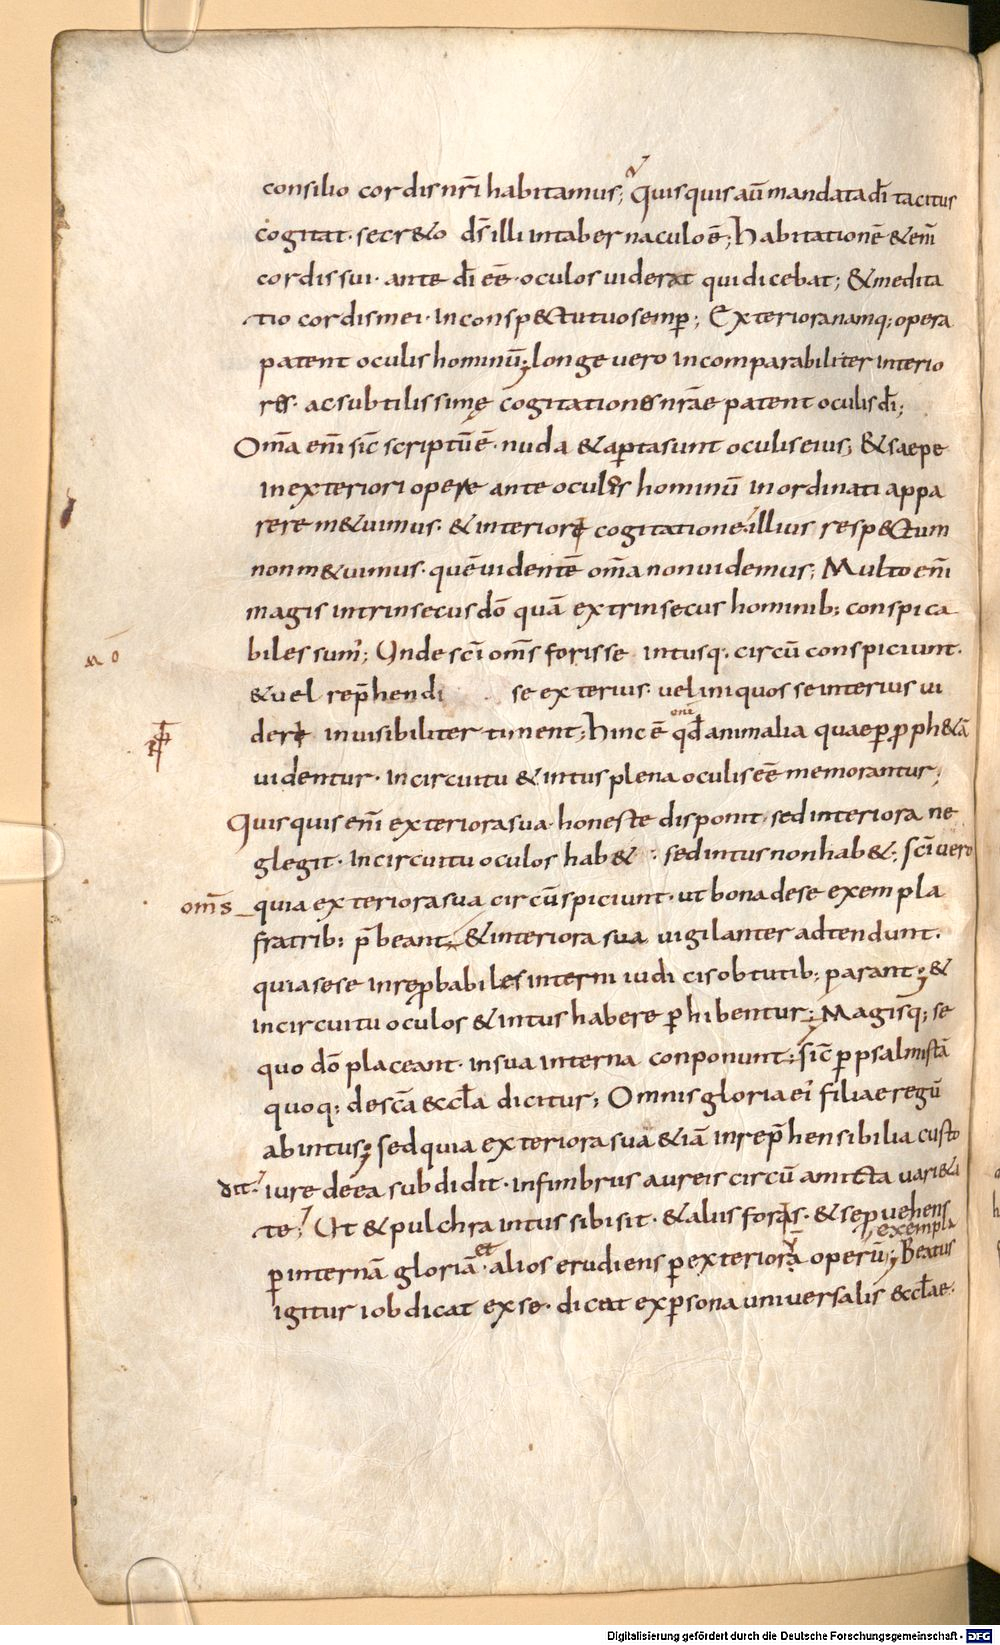 consilio cordis nr̄i habitamus; Quisquis aū mandata dī tacitus
cogitat· secr&o ds̄ illi in tabernaculo ē; Habitationē & enī
cordis sui· ante dī eē· oculos viderat qui dicebat; & medita
tio cordis mei· in consp&u tuo semp̄; Exteriora namq; opera
patent oculis hominū; longe vero incomparabiliter interio
res· ac subtilissimę cogitationes nr̄ae patent oculis dī;
Om̄a enī sic̄ scriptū ē· nuda & ap̱ta sunt oculis eius; & saepe
in exteriori opere ante oculos hominū inordinati appa
rere m&uimus· & interiore cogitatione illius resp&um
non m&uimus· quē videntē om̄a non videmus; Multo enī
magis intrinsecus dō quā extrinsecus hominib; conspica
biles sum'; Unde sc̄i om̄s foris se intusq· circū conspiciunt·
& vel rep̄hendi se exterius· vel iniquos se interius vi
dere invisibiliter timent; Hinc ē qd̄ animalia quae p̱ p̱ph&ā
om̄i
videntur· in circuitu & intus plena oculis eē memorantur;
Quisquis enī exteriora sua honeste disponit· sed interiora ne
glegit· in circuitu oculos hab& · sed intus non hab&; sc̄i vero
om̄s quia exteriora sua circūspiciunt· ut bona de se exempla
fratrib; p̄beant; & interiora sua vigilanter adtendunt·
quia sese inrep̱babiles interni iudicis obtutib; parant; &
in circuitu oculos & intus habere p̱hibentur; Magisq; se
quo dō placeant· in sua interna conponunt; sic̄ p̱ psalmistā
quoq; de sc̄a &cl̄a dicitur; Omnis gloria ei' filiae regū
ab intus; sed quia exteriora sua &iā inrep̄hensibilia custo
dit iure de ea subdidit· in fimbrus aureis circū amicta vari&a
te; Ut & pulchra intus sibi sit· & aliis foras· & se p̱vehens
exempla
p̱ internā gloriā· et alios erudiens p̱ exteriora operū; Beatus
igitur iob dicat ex se· dicat ex p̱sona universalis &cl̄ae·
Digitalisierung gefördert durch die Deutsche Forschungsgemeinschaft - DFG